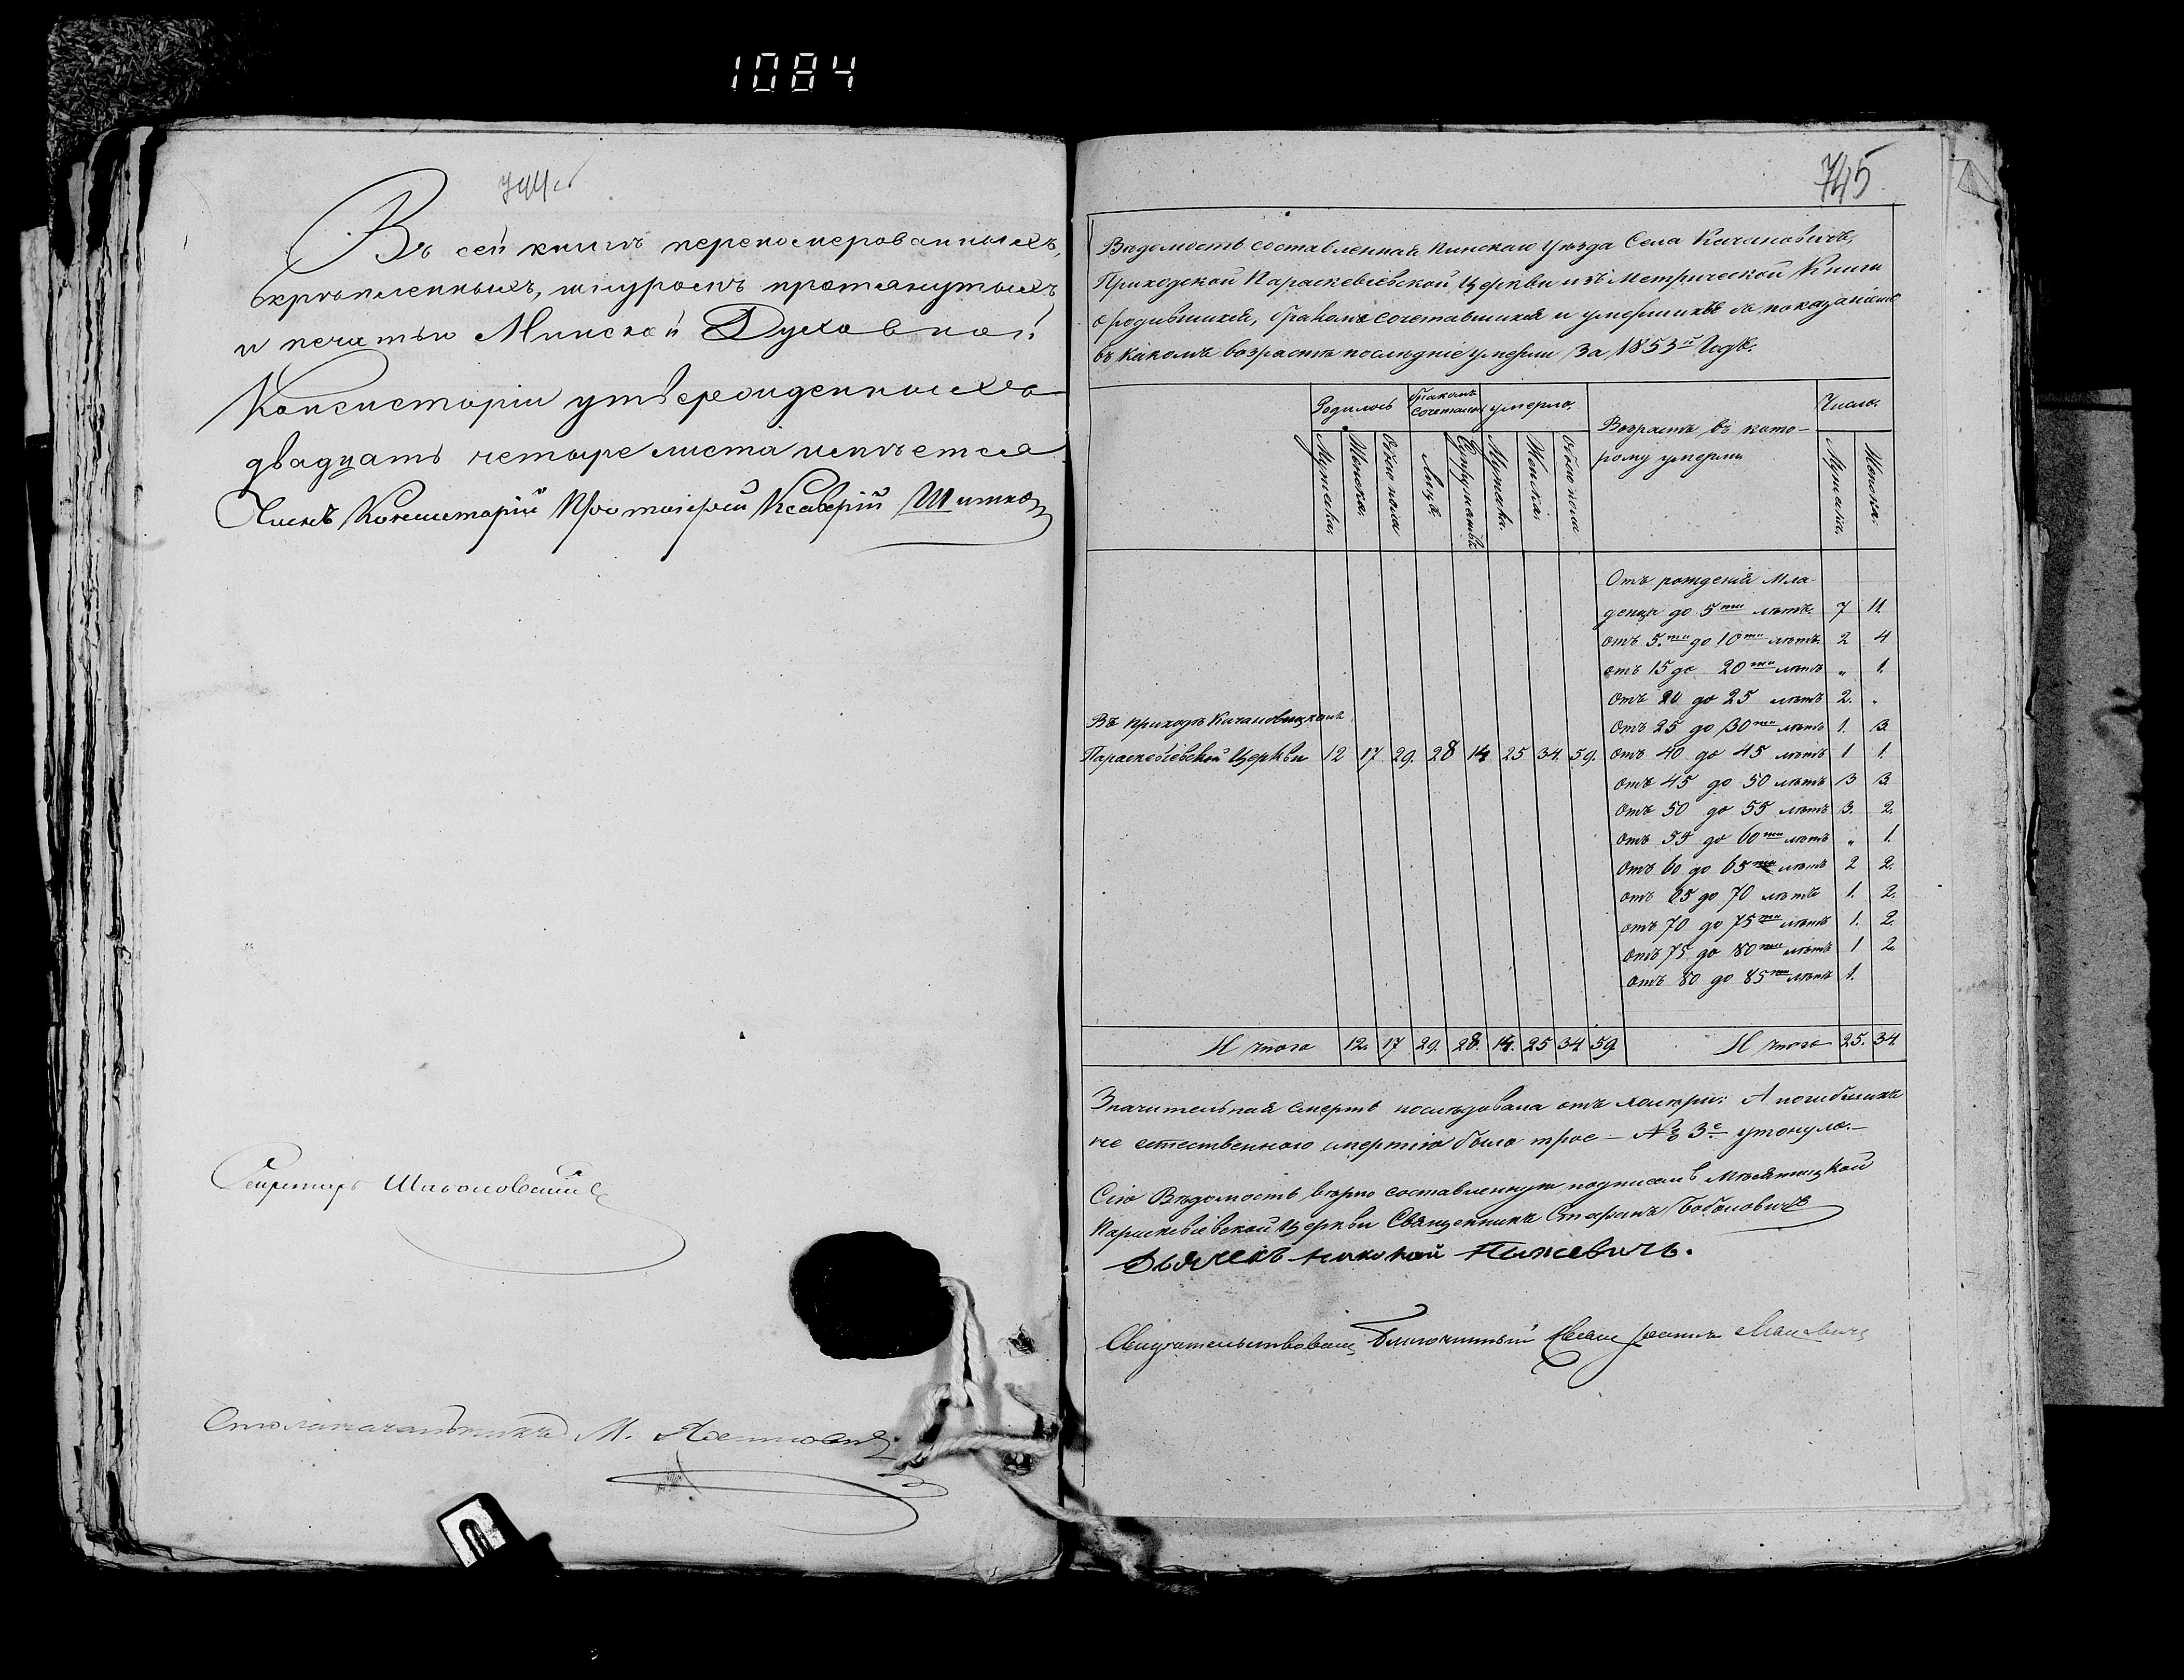 1084
744 об
Въ сей книгѣ перенумерованныхъ,
скрѣпленныхъ, шнуромъ протянутыхъ
и печатью Минской Духовной
Консисторіи утвержденныхъ
двадцать четыре листа имѣется
Членъ Консисторіи Протоіерей Ксаверій
Секретарь
Столоначальникъ М.
745
Вѣдомость составленная Пинскаго Уѣзда Села Качановичъ,
Приходской Параскевіевской Церкви изъ Метрической Книги
о родившихся, бракомъ сочетавшихся и умершихъ съ показаніемъ
въ какомъ возрастѣ послѣдніе умерли за 1853й Годъ.
Родилось бракомъ сочетались умерло. Возрастъ въ кото- Число.
рому умерли
Мужеска. Женска. Обоего пола Лицъ. Супружествъ Мужеска. Женска. Обоего пола Мужеска. Женска.
Отъ рожденія Мла-
денцы до 5ти лѣтъ. 7 11.
отъ 5.ти до 10ти лѣтъ. 2 4
отъ 15 до 20ти лѣтъ „ 1.
Отъ 20 до 25 лѣтъ 2. „
Въ приходѣ Качановицкомъ
Отъ 25 до 30ти лѣтъ 1. 3.
Параскевіевской Церкви 12 17 29. 28 14 25 34. 59. Отъ 40 до 45 лѣтъ 1 1.
Отъ 45 до 50 лѣтъ 3 3.
Отъ 50 до 55 лѣтъ 3. 2.
Отъ 55 до 60ти лѣтъ „ 1.
Отъ 60 до 65 лѣтъ 2 2.
отъ 65 до 70 лѣтъ 1. 2.
отъ 70 до 75ти лѣтъ 1. 2.
Отъ 75 до 80ти лѣтъ 1 2.
Отъ 80 до 85ти лѣтъ 1.
Итого 12. 17 29. 28. 14. 25 34 59 Итого 25. 34.
Значительная смерть послѣдовала отъ холеры: А погибшихъ
не естественною смертію было трое – утонуло.–
Сію Вѣдомость вѣрно составленную подписалъ
Параскевіевской Церкви Священникъ Стефанъ
Дьячекъ Николай
Свидѣтельствовалъ Благочинный